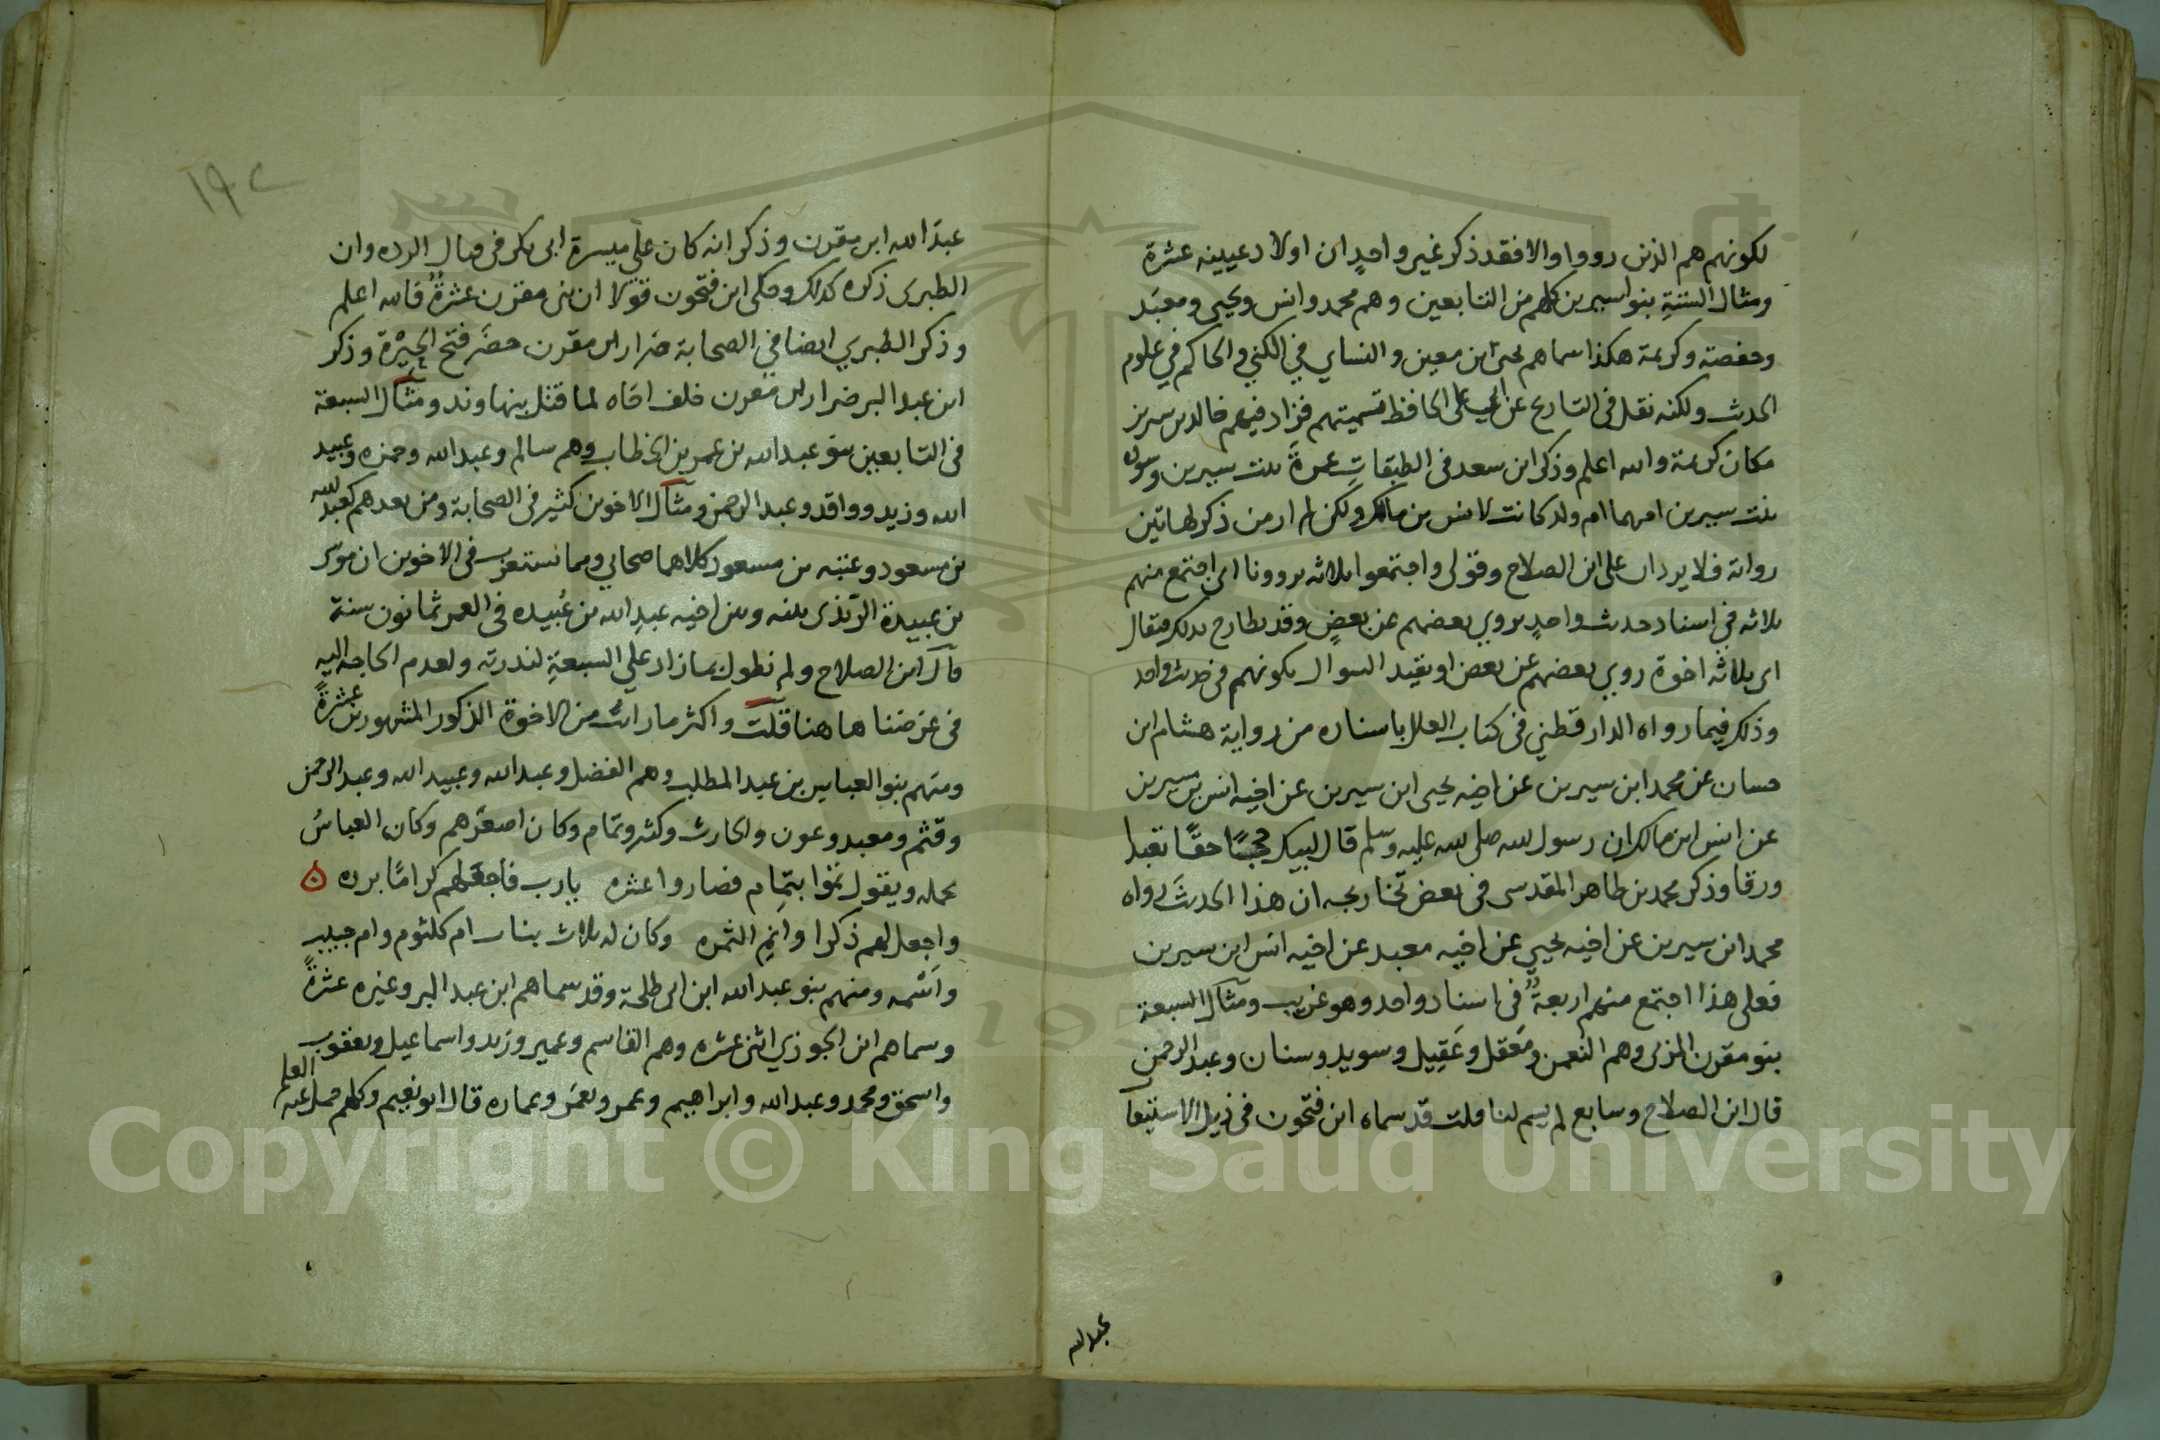 لكونهم هم الذين رووا والا فقد ذكر غير واحد ان اولاد عيينه عشرة
ومثال الستة بنو اسيرين كلهم من التابعين وهم محمد وانس ويحيى ومعبد
وحفصة وكريمة هكذا سماهم يحيى ابن معين والنساي في الكنى والحاكم في علوم
الحديث ولكنه نقل في التاريخ عن ابي علي الحافظ تسميتهم فزاد فيهم خالد بن سيرين
مكان كريمة والله اعلم وذكر ابن سعد في الطبقات عمرة بنت سيرين وسوده
بنت سيرين امهما ام ولد كانت لانس بن مالك ولكن لم ار من ذكر لهاتين
رواية فلا يردان على ابن الصلاح وقولي واجتمعوا ثلاثه يروونا اي اجتمع منهم
ثلاثه في اسناد حديث واحد يروي بعضهم عن بعض وقد يطارح بذلك فيقال
اي ثلاثه اخوة روي بعضهم عن بعض او يقيد السوال بكونهم في حديث واحد
وذلك فيما رواه الدارقطني في كتاب العلل باسناده من رواية هشام ابن
حسان عن محمد ابن سيرين عن اخيه يحيى ابن سيرين عن اخيه انس بن سيرين
عن انس ابن مالك ان رسول الله صلى الله عليه وسلم قال لبيك حجا حقا تعبدا
ورقا وذكر محمد بن طاهر المقدسي في بعض تخاريجه ان هذا الحديث رواه
محمد ابن سيرين عن اخيه يحيى عن اخيه معبد عن اخيه انس ابن سيرين
فعلى هذا اجتمع منهم اربعة في اسناد واحد وهو غريب ومثال السبعة
بنو مقرن المزني وهم النعمن ومعقل وعقيل وسويد وسنان وعبد الرحمن
قال ابن الصلاح وسابع لم يسم لنا قلت قد سماه ابن فتحون في ذيل الاستيعاب
عبد الله
١٩٢
عبد الله ابن مقرن وذكر انه كان على ميسرة ابي بكر في قتال الرده وان
الطبري ذكره كذلك وحكى ابن فتحون قولا ان بني مقرن عشرة فالله اعلم
وذكر الطبري ايضا في الصحابة ضرار ابن مقرن حضر فتح الحيرة وذكر
ابن عبد البر ضرار ابن مقرن خلف اخاه لما قتل بنهاوند ومثال السبعة
في التابعين بنو عبد الله بن عمر بن الخطاب وهم سالم وعبد الله وحمزه وعبيد
الله وزيد وواقد وعبد الرحمن ومثال الاخوين كثير في الصحابة ومن بعدهم كعبد الله
بن مسعود وعتبه بن مسعود كلاهما صحابي ومما يستغرب في الاخوين ان موسى
بن عبيدة الربذي بينه وبين اخيه عبد الله بن عبيده في العمر ثمانون سنة
قال ابن الصلاح ولم نطول بما زاد علي السبعة لندرته ولعدم الحاجه اليه
في غرضنا هاهنا قلت واكثر ما رايت من الاخوة الذكور المشهورين عشرة
ومنهم بنو العباس بن عبد المطلب وهم الفضل وعبد الله وعبيد الله وعبد الرحمن
وقثم ومعبد وعون والحارث وكثير وتمام وكان اصغرهم وكان العباس
يحمله ويقول تموا بتمام فصاروا عشره يا رب فاجعلهم كراما برره
واجعل لهم ذكرا وانم الثمره وكان له ثلاث بنات ام كلثوم وام حبيب
واميمه ومنهم بنو عبد الله ابن ابي طلحة وقد سماهم ابن عبد البر وغيره عشرة
وسماهم ابن الجوزي اثني عشره وهم القاسم وعمير وزيد واسماعيل ويعقوب
واسحق ومحمد وعبد الله وابراهيم وعمر ويعمر وعماره قال ابو نعيم وكلهم حمل عنه العلم
Copyright © King Saud University